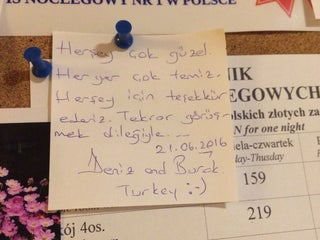 IS NOCLEGOWY NR 1 W POLSCE
Herşey çok güzel.
Heryer çok temiz.
Herşey için teşekkür
ederiz. Tekrar görüş-
mek dileğiyle...
21.06.2016
Deniz and Burak
Turkey :-)
NIK
LEGOWYCH
olskich złotych za
N for one night
iela-czwartek
day-Thusday
159
219
kój 4os.